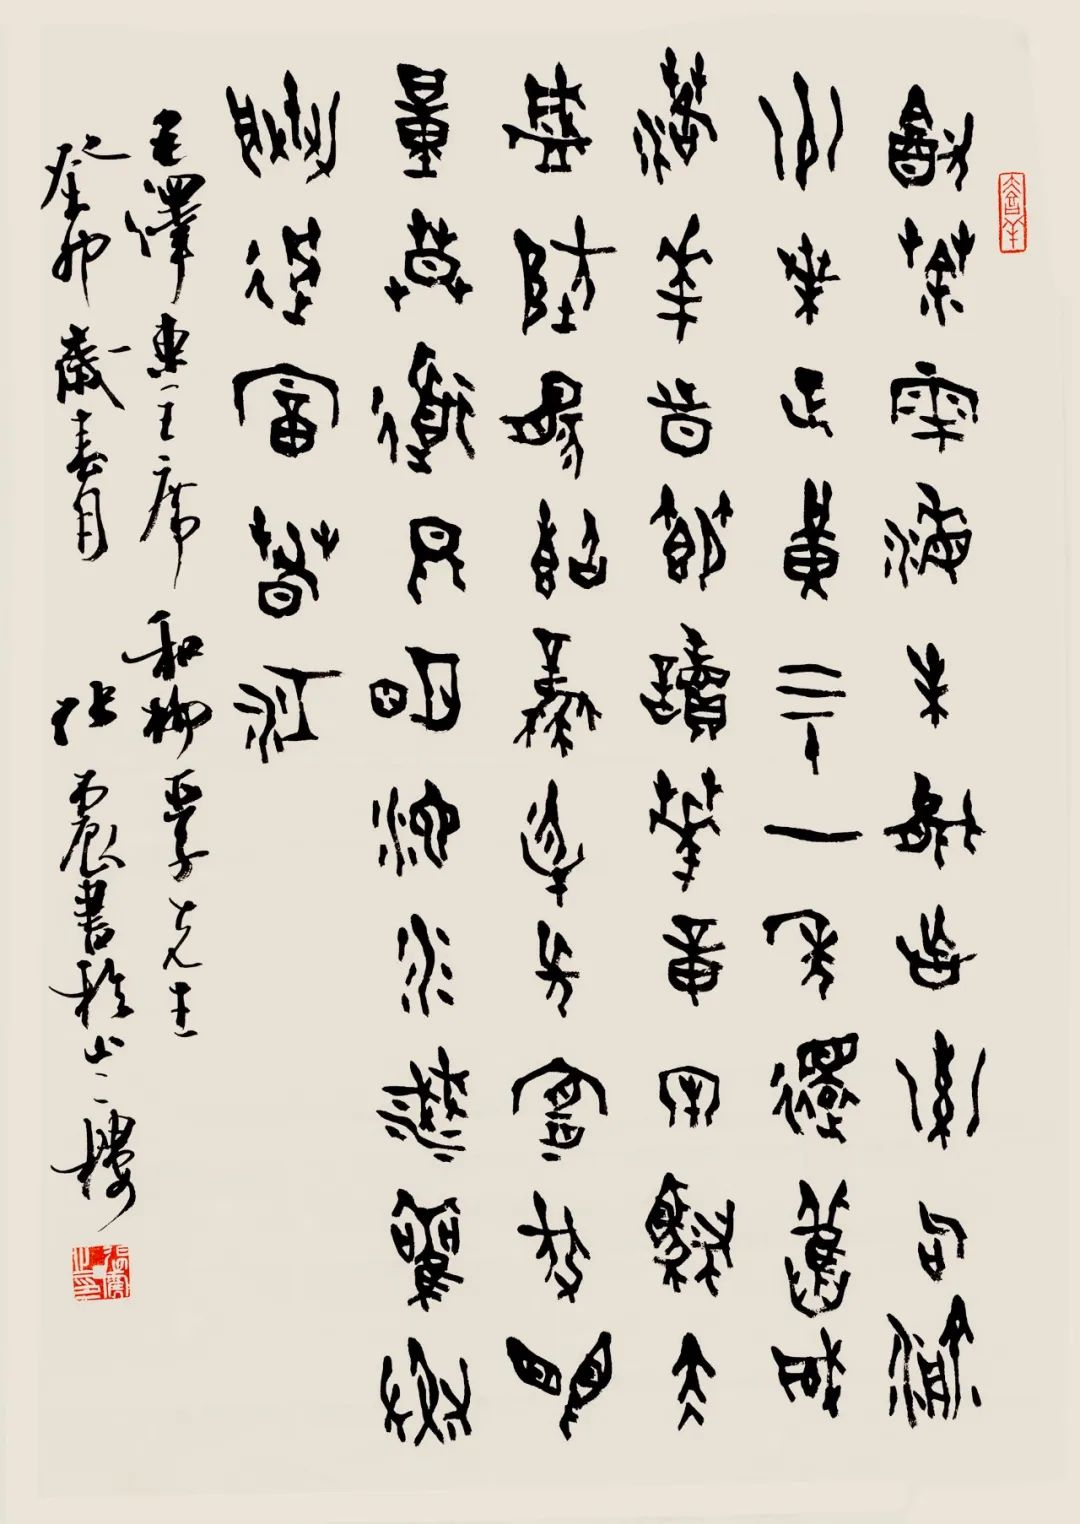 飲茶粵海未能忘索句渝
州葉正黃三十一年還舊國
落華時節讀華章牢騷太
盛防腸斷風物長宜放眼
量莫道昆明池水淺觀魚
勝過富春江
毛澤東主席和柳亞子先生
癸卯歲春月 張書於樓